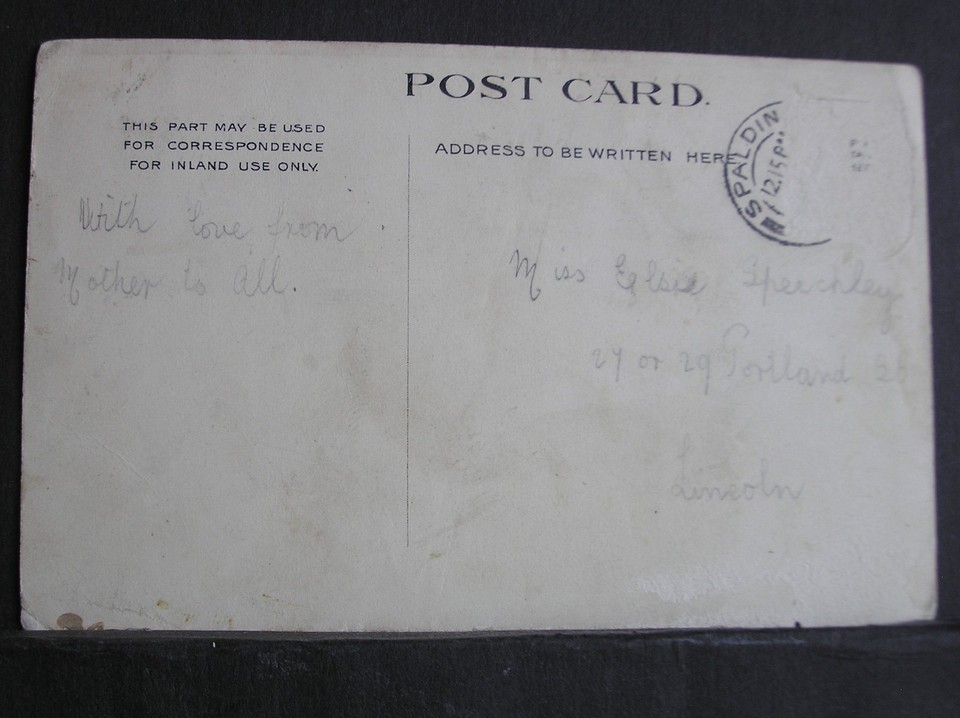 POST CARD.
THIS PART MAY BE USED
FOR CORRESPONDENCE
FOR INLAND USE ONLY.
ADDRESS TO BE WRITTEN HERE
SPALDIN
12.15 P
With love from
Mother to All.
Miss Elsie Speechley
27 or 29 Portland
Lincoln